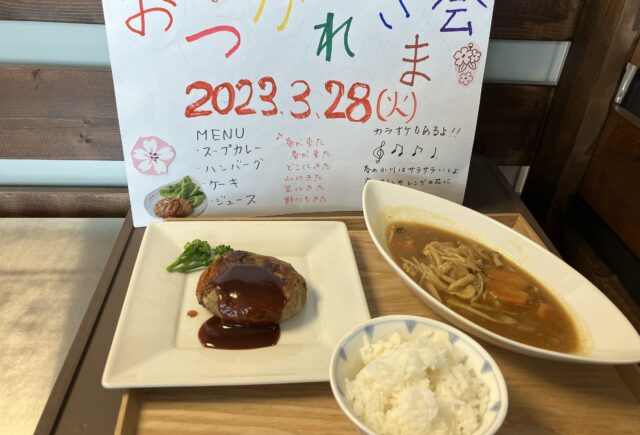 おつかれさま会
2023.3.28(火)
MENU
・スープカレー
・ハンバーグ
・ケーキ
・ジュース
♪春が来た
春が来た
どこにきた
山にきた
里にきた
野にもきた
カラオケもあるよ!!
春の小川はサラサラいくよ